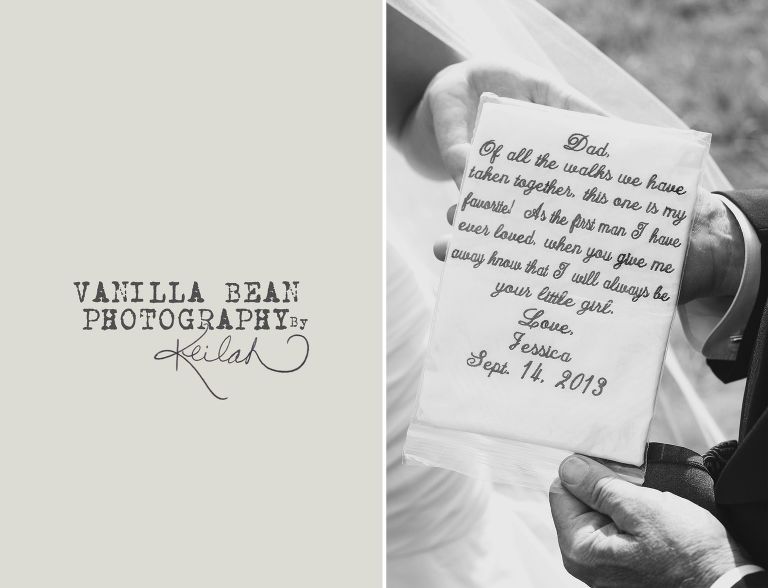 VANILLA BEAN
PHOTOGRAPHY By
Keilah
Dad,
Of all the walks we have
taken together, this one is my
favorite! As the first man I have
ever loved, when you give me
away know that I will always be
your little girl.
Love,
Jessica
Sept. 14, 2013